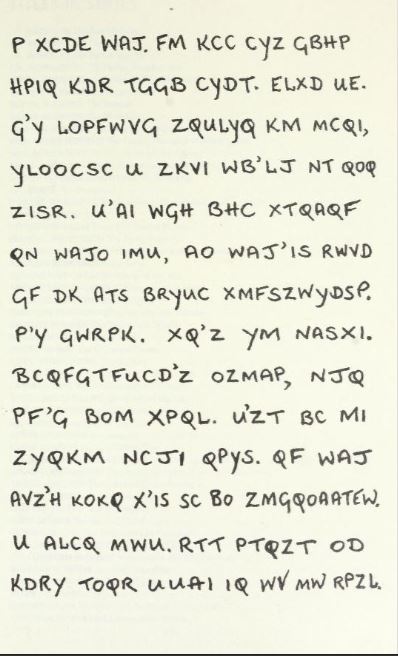 P XCDE WAJ. FM KCC CYZ GBHP
HPIQ KDR TGGB CYDT. ELXD UE.
G'Y LOPFWVG ZQULYQ KM MCQI,
YLOOCSC U ZKVI WB'LJ NT QOQ
ZISR. U'AI WGH BHC XTQAQF
QN WAJO IMU, AO WAJ'IS RWVD
GF DK ATS BRYUC XMFSZWYDSP.
P'Y GWRPK. XQ'Z YM NASXI.
BCQFGTFUCD'Z OZMAP, NJQ
PF'G BOM XPQL. U'ZT BC MI
ZYQKM NCJI QPYS. QF WAJ
AVZ'H KOKQ X'IS SC BO ZMGQOAATEW.
U ALCQ MWU. RTT PTQZT OD
KDRY TOQR UUAI IQ WV MW RPZL.